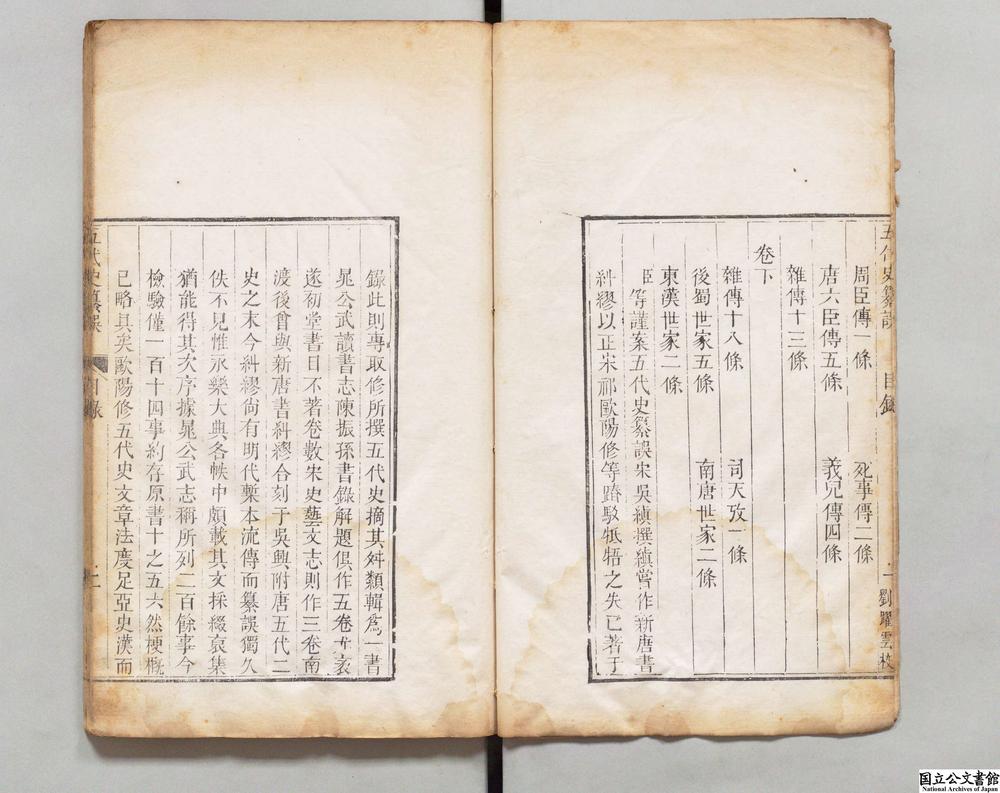 五代史纂誤 目錄 一 劉躍雲校
周臣傳一條 死事傳二條
唐六臣傳五條 義兒傳四條
雜傳十三條
卷下
雜傳十八條 司天攷一條
後蜀世家五條 南唐世家二條
東漢世家二條
臣等謹案五代史纂誤宋吳縝撰縝嘗作新唐書
糾繆以正宋祁歐陽修等踳駁牴牾之失已著于
錄此則專取修所撰五代史摘其舛類輯爲一書
晁公武讀書志陳振孫書錄解題俱作五卷尤袤
遂初堂書目不著卷數宋史藝文志則作三卷南
渡後曾與新唐書糾繆合刻于吳興附唐五代二
史之末今糾繆尚有明代槧本流傳而纂誤獨久
佚不見惟永樂大典各帙中頗載其文採綴裒集
猶能得其次序據晁公武志稱所列二百餘事今
檢驗僅一百十四事約存原書十之五六然梗概
已略具矣歐陽修五代史文章法度足亞史漢而
五代史纂誤 目錄 二
国立公文書館
National Archives of Japan